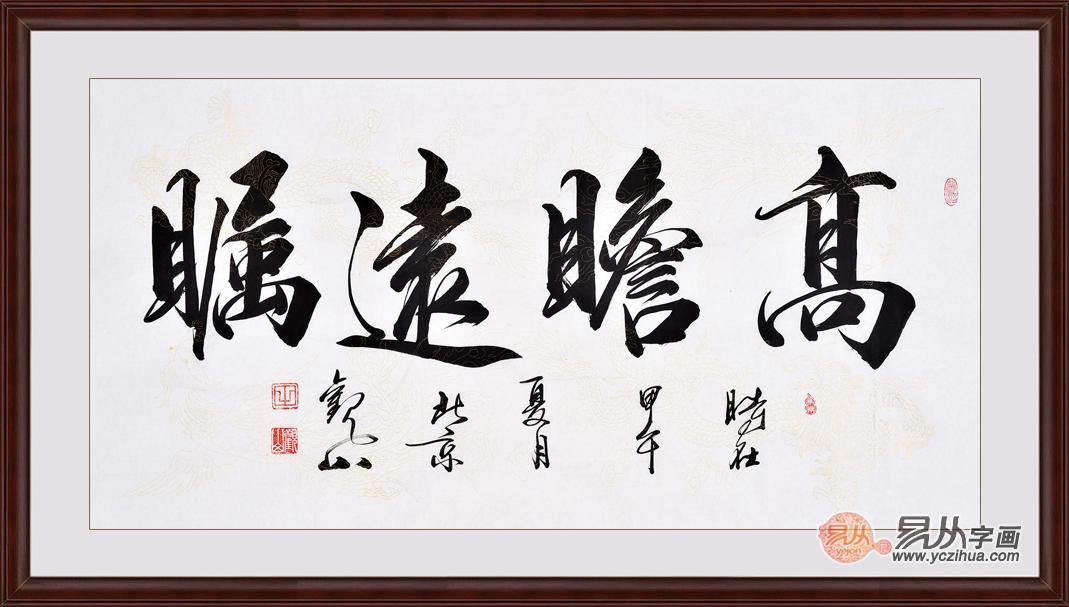 高瞻遠瞩
時在
甲午
夏月
北京
觀山
易从
yojon
易从字画
www.yczihua.com